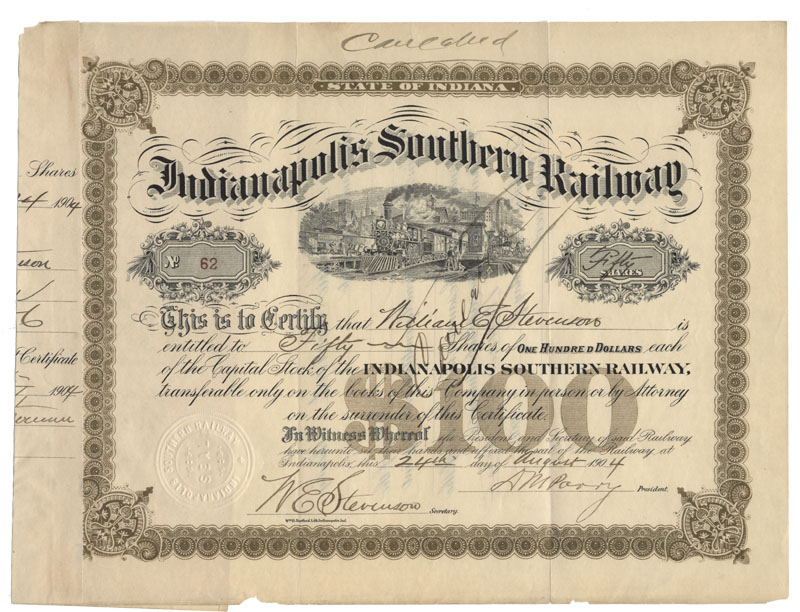 Cancelled
STATE OF INDIANA.
Indianapolis Southern Railway
Shares
24 1904
No 62
Fifty
SHARES
This is to Certify that William E Stevenson is
entitled to Fifty Shares of ONE HUNDRED DOLLARS each
of the Capital Stock of the INDIANAPOLIS SOUTHERN RAILWAY,
transferable only on the books of this Company in person or by Attorney
on the surrender of this Certificate.
$100
Certificate
1904
In Witness Whereof the President and Secretary of said Railway
have hereunto set their hands and affixed the seal of the Railway at
Indianapolis, this 24th day of August 1904
D M Parry President.
W E Stevenson Secretary.
Wm B. Burford, Lith. Indianapolis, Ind.
INDIANAPOLIS SOUTHERN RAILWAY
SEAL